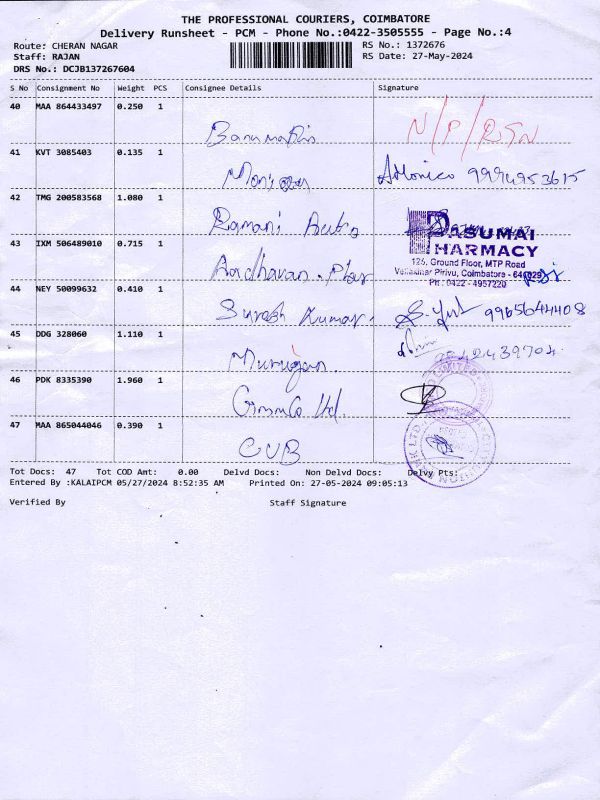 THE PROFESSIONAL COURIERS, COIMBATORE
Delivery Runsheet - PCM - Phone No.:0422-3505555 - Page No.:4
Route: CHERAN NAGAR RS No.: 1372676
Staff: RAJAN RS Date: 27-May-2024
DRS No.: DCJB137267604
S No Consignment No Weight PCS Consignee Details Signature
40 MAA 864433497 0.250 1
N/P/
41 KVT 3085403 0.135 1
9994953615
42 TMG 200583568 1.080 1
Ramani Auto
PASUMAI
PHARMACY
43 IXM 506489010 0.715 1
Aadhavan
126, Ground Floor, MTP Road
Vellakinar Pirivu, Coimbatore - 641029
Ph : 0422 - 4957220
44 NEY 50099632 0.410 1
Suresh Kumar 9965644408
45 DDG 328060 1.110 1
Murugan
46 PDK 8335390 1.960 1
Ltd.
47 MAA 865044046 0.390 1
CUB
Tot Docs: 47 Tot COD Amt: 0.00 Delvd Docs: Non Delvd Docs: Delvy Pts:
Entered By :KALAIPCM 05/27/2024 8:52:35 AM Printed On: 27-05-2024 09:05:13
Verified By Staff Signature